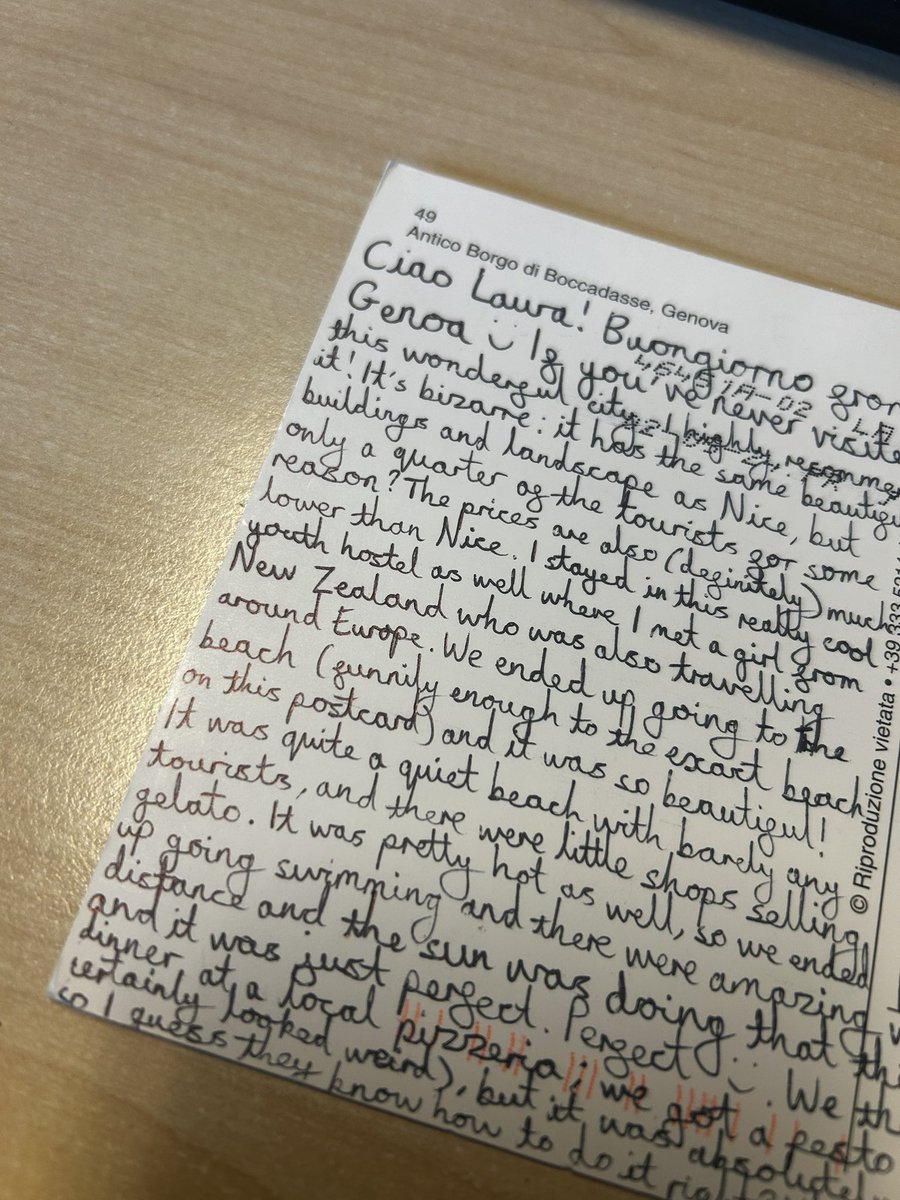 49
Antico Borgo di Boccadasse, Genova
Ciao Laura! Buongiorno from
Genoa :) If you've never visite
this wonderful city, I highly recommen
it! It's bizarre: it has the same beautifu
buildings and landscape as Nice, but
only a quarter of the tourists for some
reason? The prices are also (definitely) much
lower than Nice. I stayed in this really cool
youth hostel as well where I met a girl from
New Zealand who was also travelling
around Europe. We ended up going to the
beach (funnily enough to the exact beach
on this postcard) and it was so beautiful!
It was quite a quiet beach with barely any
tourists, and there were little shops selling
gelato. It was pretty hot as well, so we ended
up going swimming and there were amazing
distance and the sun was doing that thi
and it was just perfect. Perfect :). We th
dinner at a local pizzeria; we got a pesto
certainly looked weird), but it was absolutel
so I guess they know how to do it rig
© Riproduzione vietata • +39 333